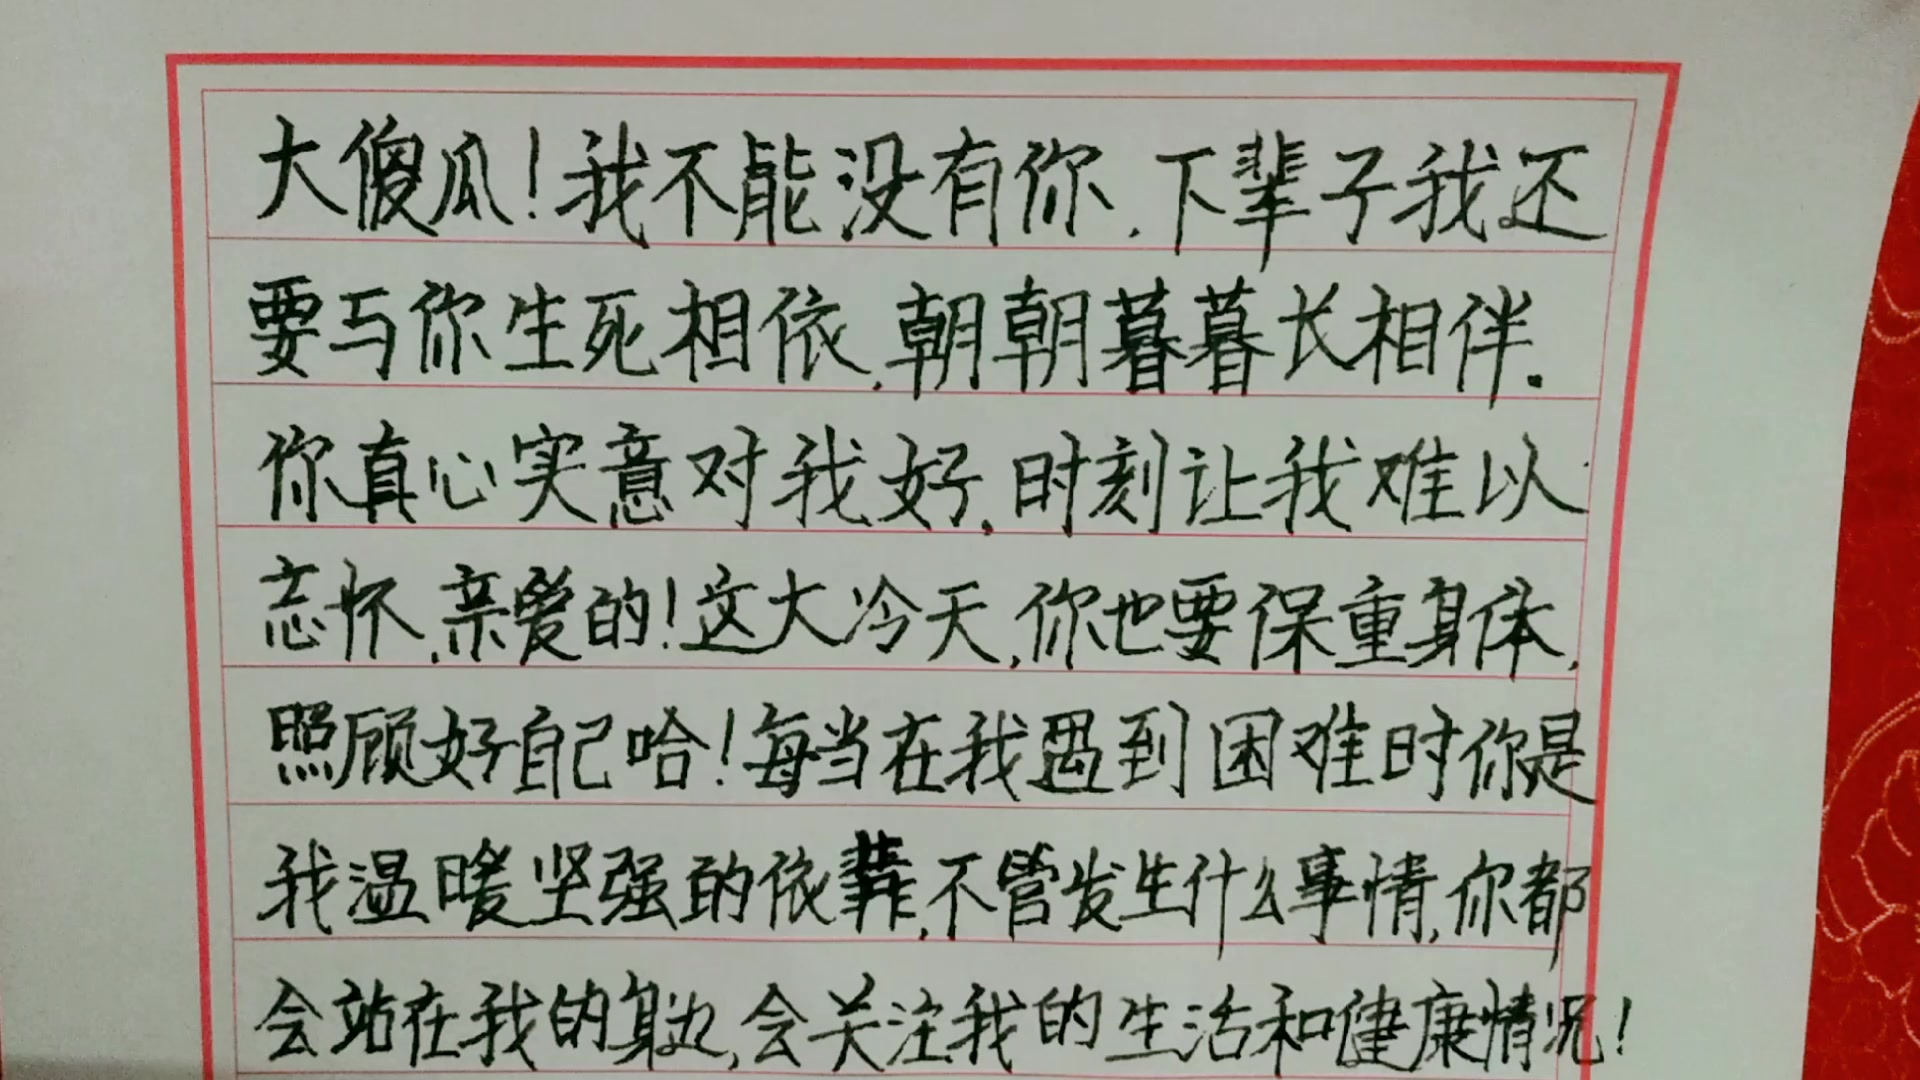 大傻瓜！我不能没有你．下辈子我还
要与你生死相依，朝朝暮暮长相伴．
你真心实意对我好．时刻让我难以
忘怀．亲爱的！这大冷天，你也要保重身体，
照顾好自己哈！每当在我遇到困难时你是
我温暖坚强的依靠，不管发生什么事情，你都
会站在我的身边，会关注我的生活和健康情况！